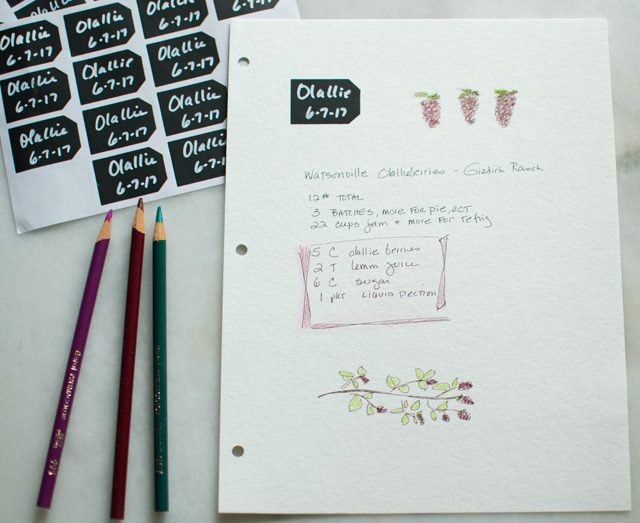 Olallie
6-7-17
Olallie
6-7-17
Olallie
6-7-17
Olallie
6-7-17
Olallie
6-7-17
Olallie
6-7-17
Olallie
6-7-17
Olallie
6-7-17
Olallie
6-7-17
Olallie
6-7-17
Olallie
6-7-17
Watsonville Olallieberries - Gizdich Ranch
12# TOTAL
3 BATCHES, more FOR PIE, ECT
22 cups jam + more for refrig
5 C olallie berries
2 T lemon juice
6 C sugar
1 pkt LIQUID PECTION